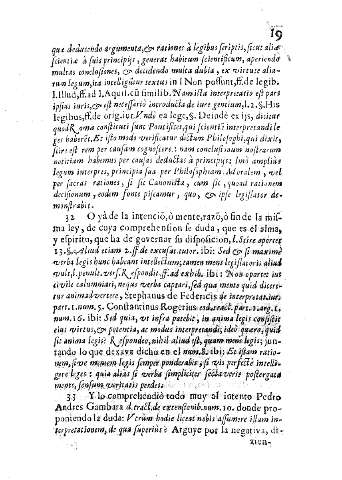 19
que deducendo argumenta, & rationes à legibus scriptis, sicut aliæ
scientiæ à suis principijs, generat habitum scientificum, aperiendo
multas conclusiones, & decidendo multa dubia, ex virtute alia-
rum legum, ita intelligitur textus in l Non possunt, ff. de legib.
l. Illud, ff. ad l. Aquil. cũ similib. Nam ista interpretatio est pars
ipsius iuris, & est necessariò introducta de iure gentium, l. 2. §. His
legibus, ff. de orig. iur. Vndè ea lege, §. Deindè ex ijs, dicitur
quod Romæ constituti sunt Pontifices, qui scientiã interpretandi le
ges haberẽt. Et isto modo verificatur dictum Philosophi, qui dixit,
scire est rem per causam cognoscere: nam conclusionum nostrarum
notitiam habemus per causas deductas à principijs: Imò amplius
legum interpres, principia sua per Philosophiam. Moralem, vel
per sacras rationes, si sit Canonista, cum sit, quoad rationem
decisionum, eodem fonte piscamur, quo, & ipse legislator de-
minstrabit.
32 O yà de la intenció, ò mente, razó, ò fin de la mis-
ma ley, de cuya comprehension se duda, que es el alma,
y espiritu, que ha de governar su disposicion, l. Scire oportet
13. §. Aliud etiam 2. ff. de excusat. tutor. ibi: Sed & si maximè
verba legis hunc habeant intellectum, tamen mens legislatoris aliud
vult, l. penult. vers. Respondit. ff. ad exhib. ibi: Non oportet ius
civile calumniari, neque verba captari, sed qua mente quid dicere-
tur animadvertere, Stephanus de Federicis de interpretat. iur.
part. 1. num. 5. Constantinus Rogerius eod. tract. part. 2. arg. 1.
num. 16. ibi: Sed quia, vt infra prædic, in anima legis consistit
eius virtus, & potentia, ac modus interpretandi; ideò quæro, quid
sit anima legis? Respondeo, nihil aliud est, quam mens legis; jun-
tando lo que dexava dicho en el num. 8. ibi: Et istam ratio-
nem, sive mentem legis semper ponderabis, si vis perfectè intelli-
gere: quia alias si verba simpliciter sectaberis postergata
mente, sensum veritatis perdes.
33 Y lo comprehendiò todo muy al intento Pedro
Andres Gambara d. tract. de extensionib. num. 10. donde pro-
poniendo la duda: Vtrùm hodie liceat nobis assumere illam in-
terpretationem, de qua superiùs? Arguye por la negativa, di-
zien-